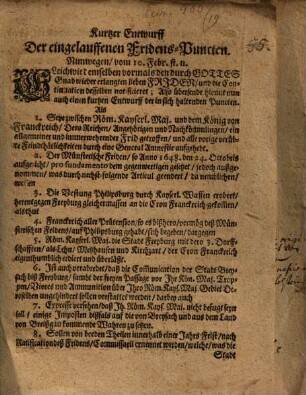 Kurtzer Entwurff
Der eingelauffenen Fridens-Puncten.
Nimwegen/ vom 10. Febr. st. n.
Gleichwie denselben vormals den durch GOTTES
Gnad wieder erlangten lieben FRIDEN/ und die Con-
dasselbe vormals notificieret; Also übersende hiemit nun
auch einen kurtzen Entwurf der in sich haltenden Puncten.
Als
1. Sepe zwischen Röm. Kayserl. Maj. und dem König von
Franckreich/ Dero Reichen/ Angehörigen und Nachkömmlingen/ ein
allgemeiner und immerwehrender Frid getroffen/ und alle vorige verüb-
te Feindthätlichkeit durch eine General Amnestie aufgehebt.
2. Der Münsterische Friden/ so Anno 1648. den 24. Octobris
aufgericht/ pro fundamento dem gegenwertigen gesetzet/ jedoch außge-
nommen/ was durch nachfolgende Articul geendert/ da neuübler/ wer-
den
3. Die Vestung Philipsburg durch Kayserl. Waffen erobert/
herentgegen Freyburg gleichermassen an die Cron Franckreich gekommen/
als thut
4. Franckreich aller Prätension/ so es bißhero/ vermög deß Mün-
sterischen Fridens/ auf Philipsburg gehabt/ sich begeben/ dargegen
5. Röm. Kayserl. Maj. die Stadt Freyburg mit dero 3. Dorff-
schafften/ als Lehn/ Metzhausen und Kirchzart/ der Cron Franckreich
eigenthumblich cediret und überläst.
6. Ist auch verabredet/ daß die Communication der Stadt Brey-
sach biß Freyburg/ sambt der freyen Passage vor Ihr Kön. Maj. Trou-
pen/ Vivres und Ammunition über Ihro Röm. Kays. Maj. Gebiet De-
roselben ungehindert sollen verstattet werden/ darbey auch
7. Expresse versehen/ daß Ih. Röm. Kays. Maj. nicht befugt seyn
soll/ einige Imposten deßfals auf die von Breysach und aus dem Land
von Breißgau kommende Wahren zu setzen.
8. Sollen von beeden Theilen innerhalb einer Jahrs-Frist/ nach
Ratification deß Fridens/ Commissarii ernennet werden/ welche/ was die
Stadt